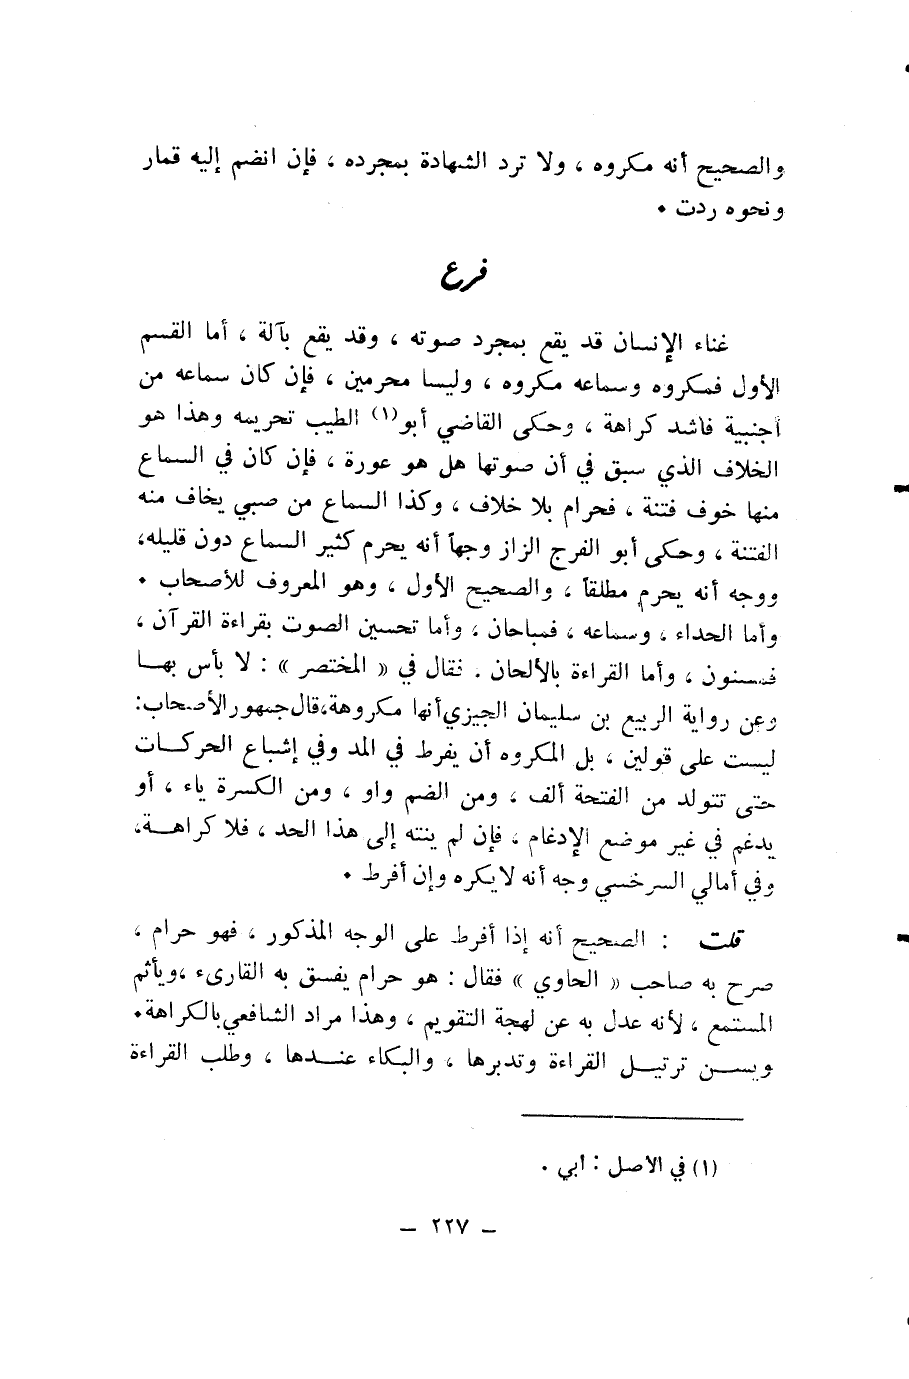 والصحيح أنه مكروه ، ولا ترد الشهادة بمجرده ، فإن انضم إليه قمار
ونحوه ردت .
فرع
غناء الإنسان قد يقع بمجرد صوته ، وقد يقع بآلة ، أما القسم
الأول فمكروه وسماعه مكروه ، وليسا محرمين ، فإن كان سماعه من
أجنبية فاشد كراهة ، وحكى القاضي أبو(١) الطيب تحريمه وهذا هو
الخلاف الذي سبق في أن صوتها هل هو عورة ، فإن كان في السماع
منها خوف فتنة ، فحرام بلا خلاف ، وكذا السماع من صبي يخاف منه
الفتنة ، وحكى أبو الفرج الزاز وجهاً أنه يحرم كثير السماع دون قليله،
ووجه أنه يحرم مطلقاً ، والصحيح الأول ، وهو المعروف للأصحاب .
وأما الحداء ، وسماعه ، فمباحان ، وأما تحسين الصوت بقراءة القرآن ،
فمسنون ، وأما القراءة بالألحان . فقال في « المختصر » : لا بأس بهــا
وعن رواية الربيع بن سليمان الجيزي أنها مكروهة،قال جمهور الأصحاب:
ليست على قولين ، بل المكروه أن يفرط في المد وفي إشباع الحركــات
حتى تتولد من الفتحة ألف ، ومن الضم واو ، ومن الكسرة ياء ، أو
يدغم في غير موضع الإدغام ، فإن لم ينته إلى هذا الحد ، فلا كراهــة،
وفي أمالي السرخسي وجه أنه لايكره وإن أفرط .
قلت : الصحيح أنه إذا أفرط على الوجه المذكور ، فهو حرام ،
صرح به صاحب « الحاوي » فقال : هو حرام يفسق به القارىء ،ويأثم
المستمع ، لأنه عدل به عن لهجة التقويم ، وهذا مراد الشافعي بالكراهة.
ويســن ترتيــل القراءة وتدبرها ، والبكاء عنــدها ، وطلب القراءة
(١) في الاصل : أبي .
ــ ٢٢٧ ــ